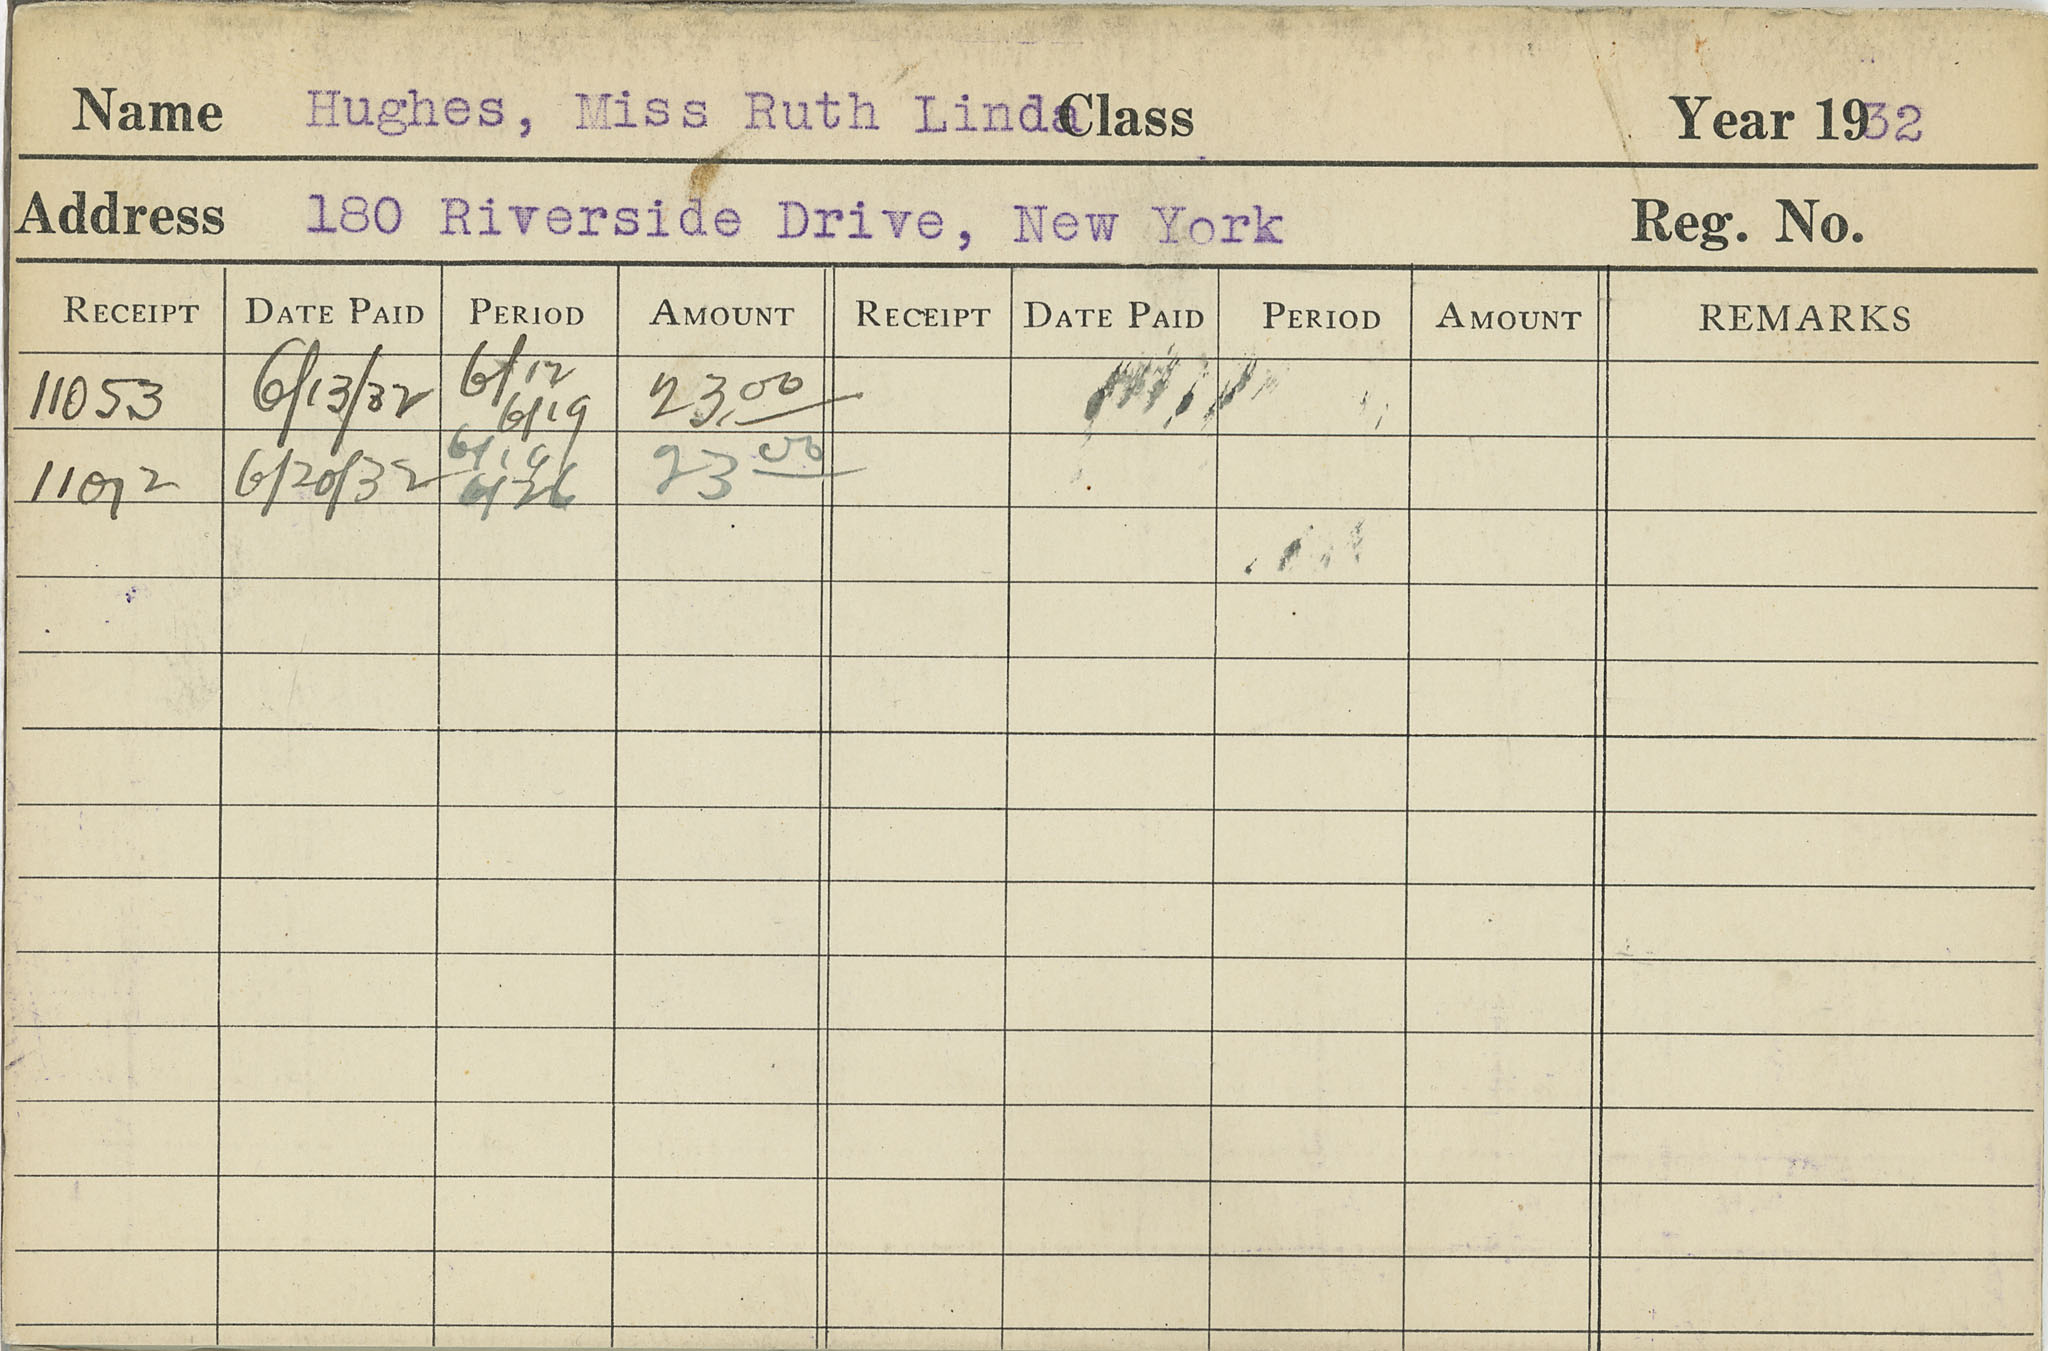 Name Hughes, Miss Ruth Linda Class Year 1932
Address 180 Riverside Drive, New York Reg. No.
RECEIPT DATE PAID PERIOD AMOUNT RECEIPT DATE PAID PERIOD AMOUNT REMARKS
11053 6/13/32 6/12 23.00
6/19
11092 6/20/32 6/19 23 00
6/26